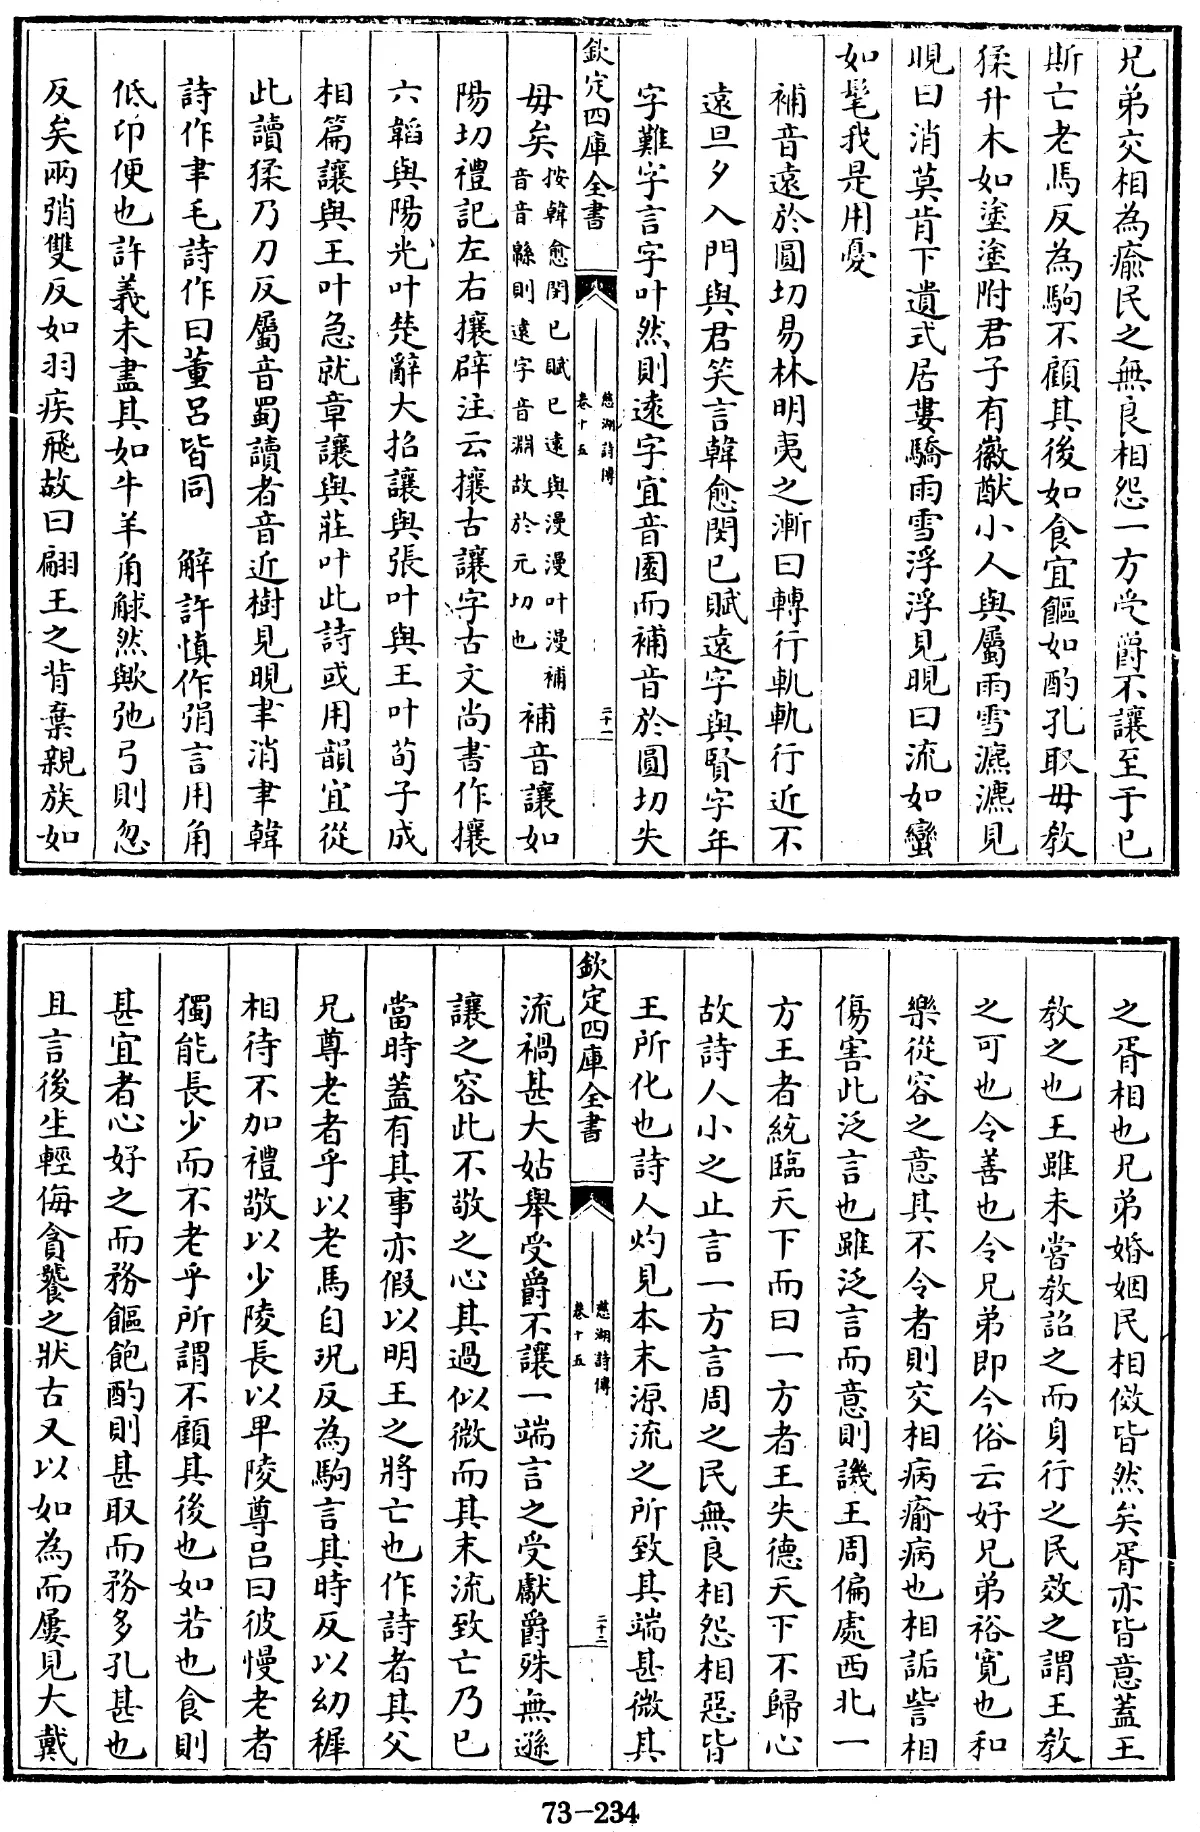 兄弟交相為瘉民之無良相怨一方受爵不讓至于已
斯亡老馬反為駒不顧其後如食宜饇如酌孔取毋敎
猱升木如塗塗附君子有徽猷小人與屬雨雪瀌瀌見
晛曰消莫肯下遺式居婁驕雨雪浮浮見晛曰流如蠻
如髦我是用憂
補音遠於圓切易林明夷之漸曰轉行軌軌行近不
遠旦夕入門與君笑言韓愈閔已賦遠字與賢字年
字難字言字叶然則遠字宜音園而補音於圓切失
毋矣按韓愈閔已賦已遠與漫漫叶漫補音音緜則遠字音淵故於元切也 補音讓如
欽定四庫全書
慈湖詩傳
卷十五
二十一
陽切禮記左右攘辟注云攘古讓字古文尚書作攘
六韜與陽光叶楚辭大招讓與張叶與王叶荀子成
相篇讓與王叶急就章讓與莊叶此詩或用韻宜從
此讀猱乃刀反屬音蜀讀者音近樹見晛聿消聿韓
詩作聿毛詩作曰董呂皆同 解許慎作弲言用角
低卬便也許義未盡其如牛羊角觩然歟弛弓則忽
反矣兩弰雙反如羽疾飛故曰翩王之背棄親族如
之胥相也兄弟婚姻民相傚皆然矣胥亦皆意蓋王
敎之也王雖未嘗敎詔之而身行之民效之謂王敎
之可也令善也令兄弟即今俗云好兄弟裕寛也和
樂從容之意其不令者則交相病瘉病也相詬訾相
傷害此泛言也雖泛言而意則譏王周偏處西北一
方王者統臨天下而曰一方者王失德天下不歸心
故詩人小之止言一方言周之民無良相怨相惡皆
王所化也詩人灼見本末源流之所致其端甚微其
欽定四庫全書
慈湖詩傳
卷十五
二十二
流禍甚大姑舉受爵不讓一端言之受獻爵殊無遜
讓之容此不敬之心其過似微而其末流致亡乃已
當時蓋有其事亦假以明王之將亡也作詩者其父
兄尊老者乎以老馬自況反為駒言其時反以幼穉
相待不加禮敬以少陵長以卑陵尊呂曰彼慢老者
獨能長少而不老乎所謂不顧其後也如若也食則
甚宜者心好之而務饇飽酌則甚取而務多孔甚也
且言後生輕侮貪饕之狀古又以如為而屢見大戴
73-234